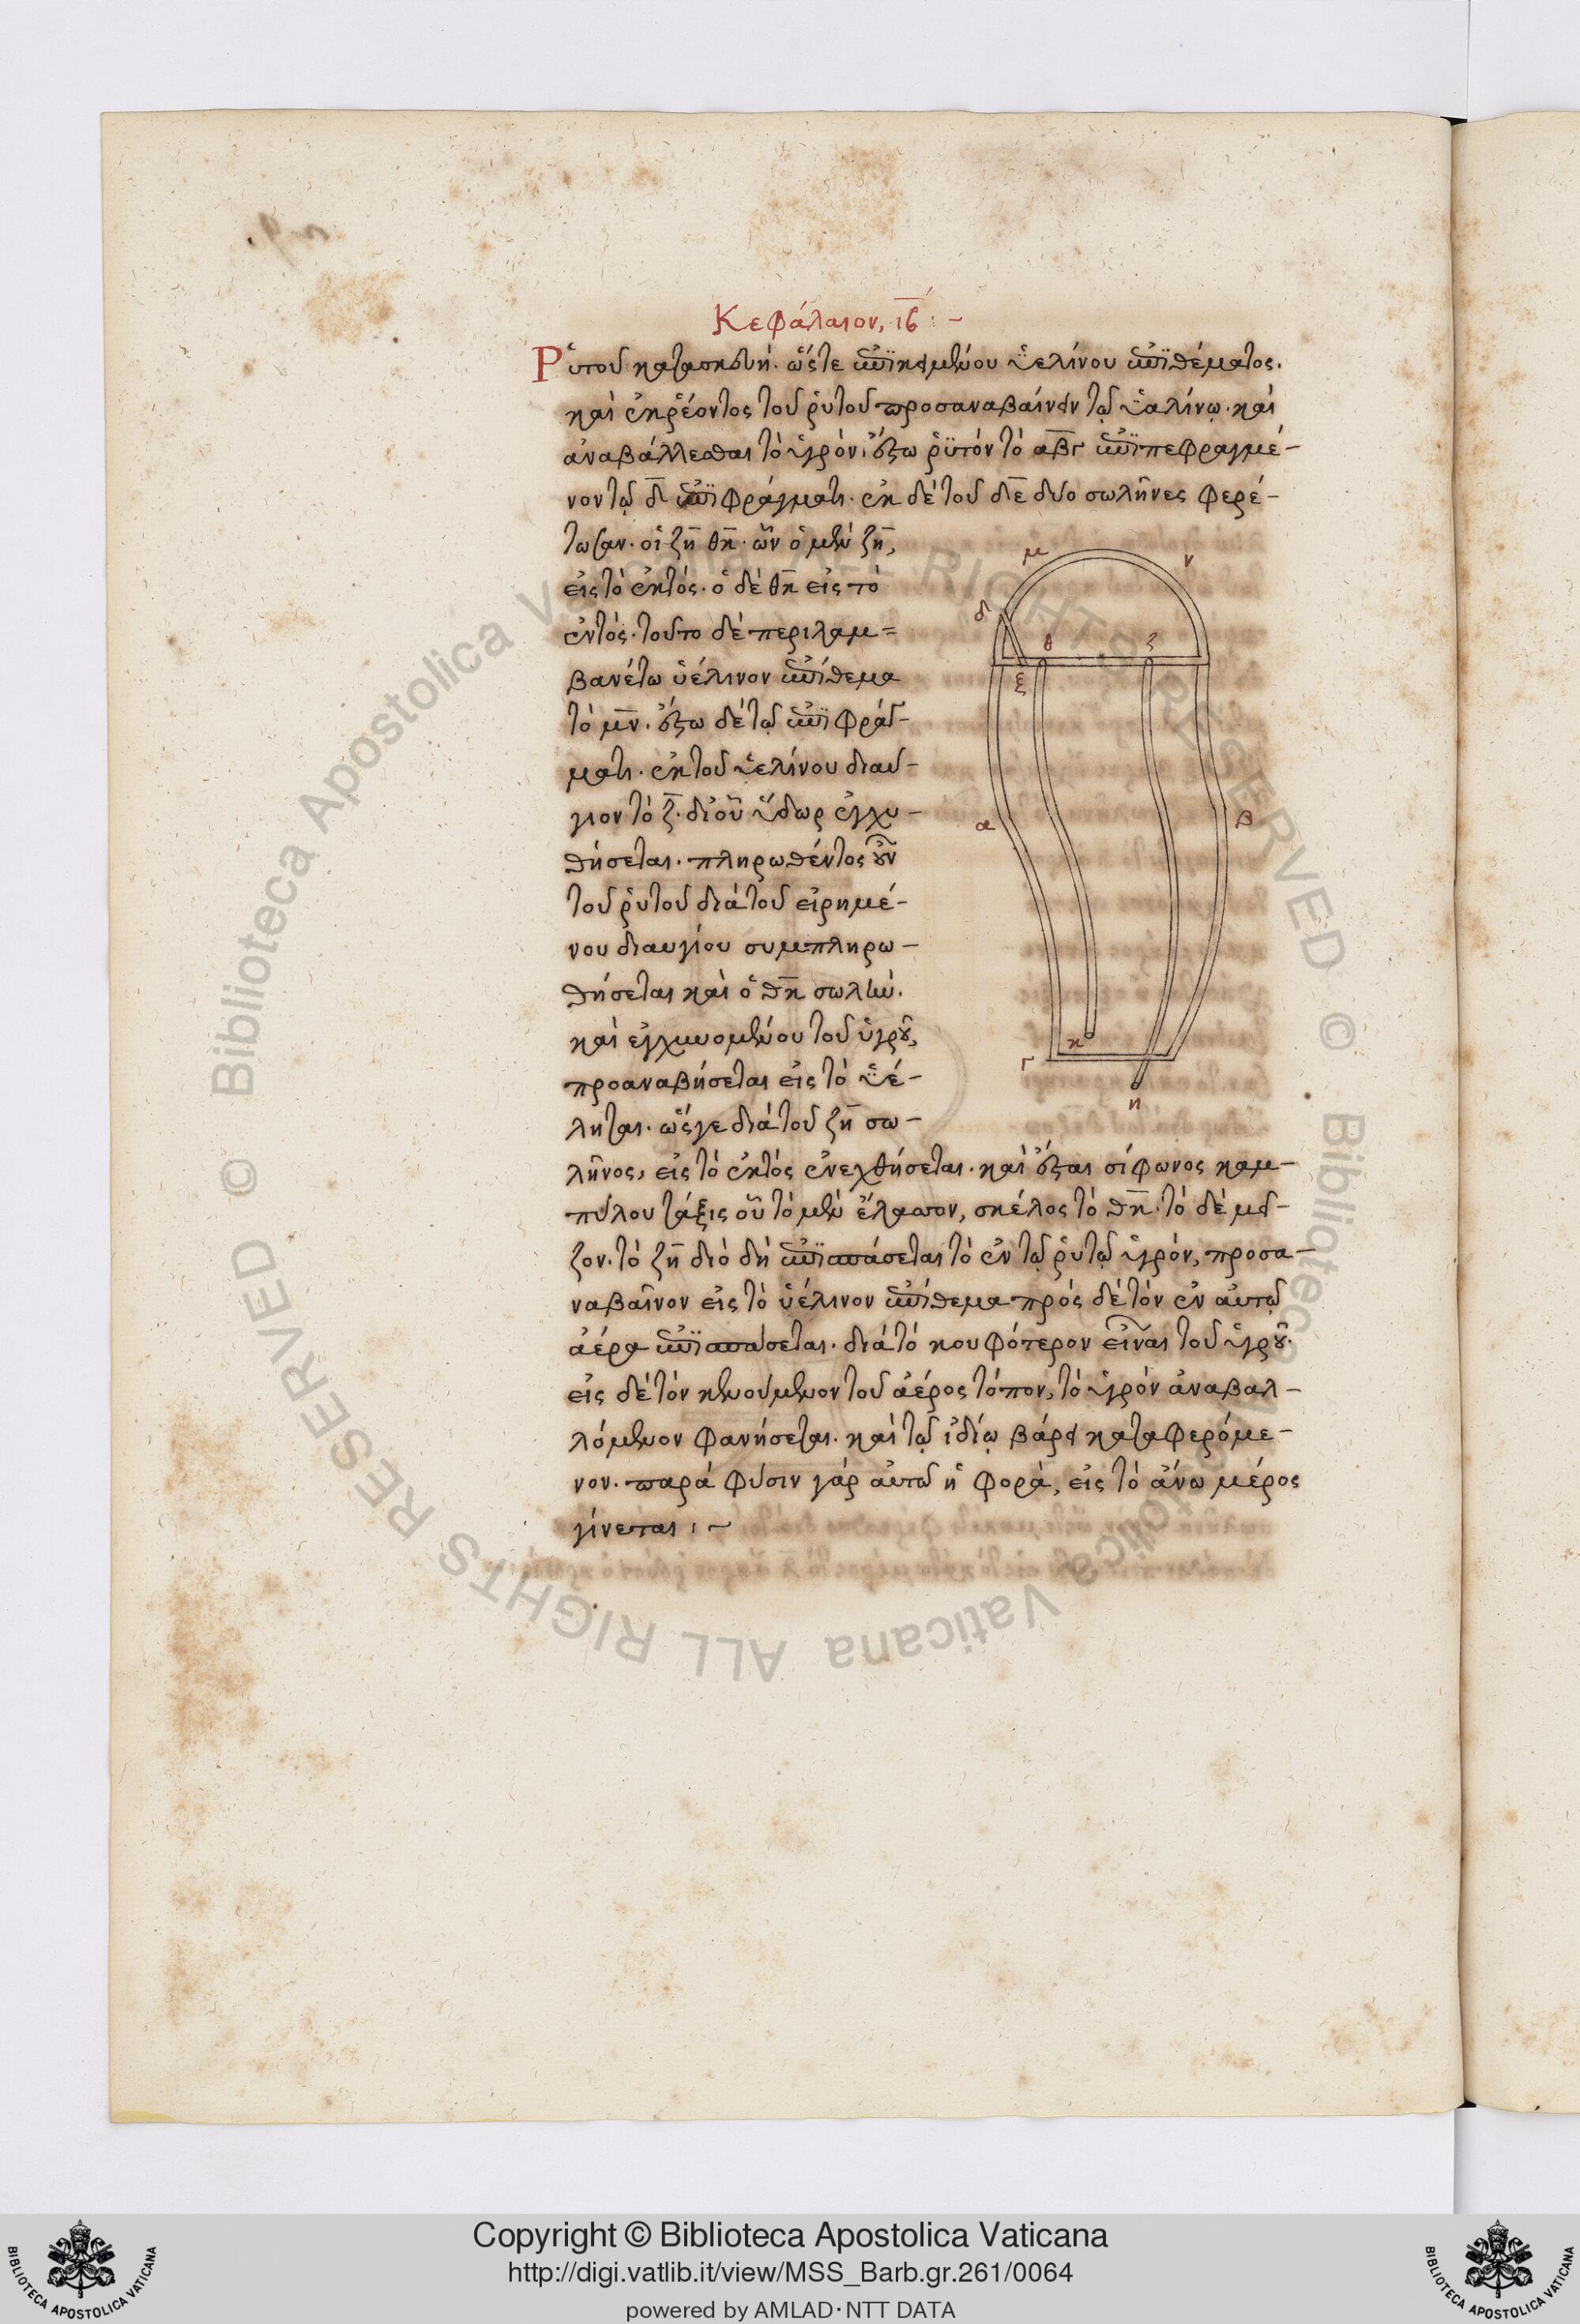 Κεφάλαιον, ιβ́ : ~
Ῥυτοῦ κατασκευή. ὥστε ἐπικειμένου ὑελίνου ἐπιθέματος.
καὶ ἐκρέοντος τοῦ ῥυτοῦ προσαναβαίνειν τῷ ὑαλίνῳ. καὶ
ἀναβάλλεσθαι τὸ ὑγρόν. ἔστω ῥυτόν τὸ αβγ ἐπιπεφραγμέ-
νον τῷ δε ἐπιφράγματι. ἐκ δὲ τοῦ δε δύο σωλῆνες φερέ-
τωσαν. οἱ ζη θκ. ὧν ὁ μὲν ζη,
εἰς τὸ ἐκτός. ὁ δὲ θκ εἰς τὸ
ἐντός. τοῦτο δὲ περιλαμ=
βανέτω ὑέλινον ἐπίθεμα
τὸ μν. ἔστω δὲ τῷ ἐπιφράγ-
ματι. ἐκ τοῦ ὑελίνου διαύ-
γιον τὸ ξ. δι' οὗ ὕδωρ ἐγχυ-
θήσεται. πληρωθέντος οὖν
τοῦ ῥυτοῦ διὰ τοῦ εἰρημέ-
νου διαυγίου συμπληρω-
θήσεται καὶ ὁ θκ σωλήν.
καὶ ἐγχεομένου τοῦ ὑγροῦ,
προαναβήσεται εἰς τὸ ὑέ-
ληται. ὥςγε διὰ τοῦ ζη σω-
λῆνος, εἰς τὸ ἐκτός ἐνεχθήσεται. καὶ ἔσται σίφωνος καμ-
πύλου τάξις οὗ τὸ μὲν ἔλαττον, σκέλος τὸ θκ. τὸ δὲ μεῖ-
ζον. τὸ ζη διὸ δή ἐπισπάσεται τὸ ἐν τῷ ῥυτῷ ὑγρόν, προσα-
ναβαῖνον εἰς τὸ ὑέλινον ἐπίθεμα πρός δὲ τὸν ἐν αὐτῷ
ἀέρα ἐπισπάσεται. διὰ τὸ κουφότερον εἶναι τοῦ ὑγροῦ.
εἰς δὲ τὸν κενούμενον τοῦ ἀέρος τόπον, τὸ ὑγρόν ἀναβαλ-
λόμενον φανήσεται. καὶ τῷ ἰδίῳ βάρει καταφερόμε-
νον. παρά φύσιν γάρ αὐτῷ ἡ φορά, εἰς τὸ ἄνω μέρος
γίνεται : ~
μ
ν
δ
θ
ζ
ξ
α
β
κ
γ
η
© Biblioteca Apostolica Vaticana ALL RIGHTS RESERVED © Biblioteca Apostolica Vaticana ALL RIGHTS RESERVED
BIBLIOTECA APOSTOLICA VATICANA
Copyright © Biblioteca Apostolica Vaticana
http://digi.vatlib.it/view/MSS_Barb.gr.261/0064
powered by AMLAD·NTT DATA
BIBLIOTECA APOSTOLICA VATICANA